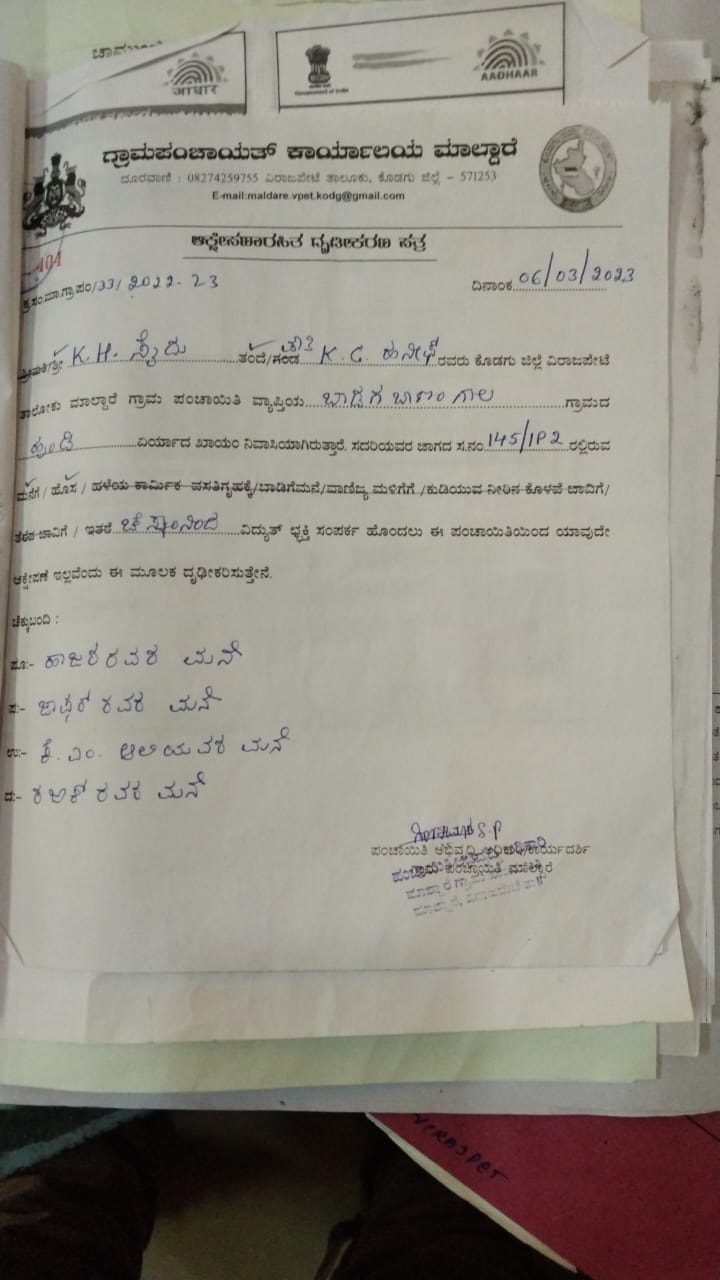 ಚಾಮು
आधार
Government of India
AADHAAR
ಗ್ರಾಮಪಂಚಾಯತ್ ಕಾರ್ಯಾಲಯ ಮಾಲ್ದಾರೆ
ದೂರವಾಣಿ : 08274259755 ವಿರಾಜಪೇಟೆ ತಾಲೂಕು, ಕೊಡಗು ಜಿಲ್ಲೆ – 571253
E-mail:maldare.vpet.kodg@gmail.com
ಆಕ್ಷೇಪಣಾರಹಿತ ದೃಢೀಕರಣ ಪತ್ರ
101
ಕ್ರ.ಸಂ.ಮಾ.ಗ್ರಾ.ಪಂ/33/ 2022-23 ದಿನಾಂಕ 06/03/2023
ಶ್ರೀಮತಿ/ಶ್ರೀ K.H. ಸೈದು ತಂದೆ/ಗಂಡ K.C. ಹನೀಫ್ ರವರು ಕೊಡಗು ಜಿಲ್ಲೆ ವಿರಾಜಪೇಟೆ
ತಾಲೋಕು ಮಾಲ್ದಾರೆ ಗ್ರಾಮ ಪಂಚಾಯಿತಿ ವ್ಯಾಪ್ತಿಯ ಬಾಡಗ ಬಾಣಂಗಾಲ ಗ್ರಾಮದ
ಹುಂಡಿ ಏರ್ಯಾದ ಖಾಯಂ ನಿವಾಸಿಯಾಗಿರುತ್ತಾರೆ. ಸದರಿಯವರ ಜಾಗದ ಸ.ನಂ 145/1P2 ರಲ್ಲಿರುವ
ಮನೆಗೆ / ಹೊಸ / ಹಳೆಯ ಕಾರ್ಮಿಕ ವಸತಿಗೃಹಕ್ಕೆ/ಬಾಡಿಗೆಮನೆ/ವಾಣಿಜ್ಯ ಮಳಿಗೆಗೆ /ಕುಡಿಯುವ ನೀರಿನ ಕೊಳವೆ ಬಾವಿಗೆ/
ತೆರೆದ ಬಾವಿಗೆ / ಇತರೆ ಚೆಸ್ಕಾಂನಿಂದ ವಿದ್ಯುತ್ ಛಕ್ತಿ ಸಂಪರ್ಕ ಹೊಂದಲು ಈ ಪಂಚಾಯಿತಿಯಿಂದ ಯಾವುದೇ
ಆಕ್ಷೇಪಣೆ ಇಲ್ಲವೆಂದು ಈ ಮೂಲಕ ದೃಢೀಕರಿಸುತ್ತೇನೆ.
ಚೆಕ್ಕುಬಂದಿ :
ಪೂ:- ಹಾಜರರವರ ಮನೆ
ಪ:- ಜಾಫರ್ ರವರ ಮನೆ
ಉ:- ಕೆ.ಎಂ. ಆಲಿಯವರ ಮನೆ
ದ:- ರಜಾಕ್ ರವರ ಮನೆ
ಪಂಚಾಯಿತಿ ಅಭಿವೃದ್ಧಿ ಅಧಿಕಾರಿ/ಕಾರ್ಯದರ್ಶಿ
ಗ್ರಾಮ ಪಂಚಾಯಿತಿ ಮಾಲ್ದಾರೆ
VIRAJPET